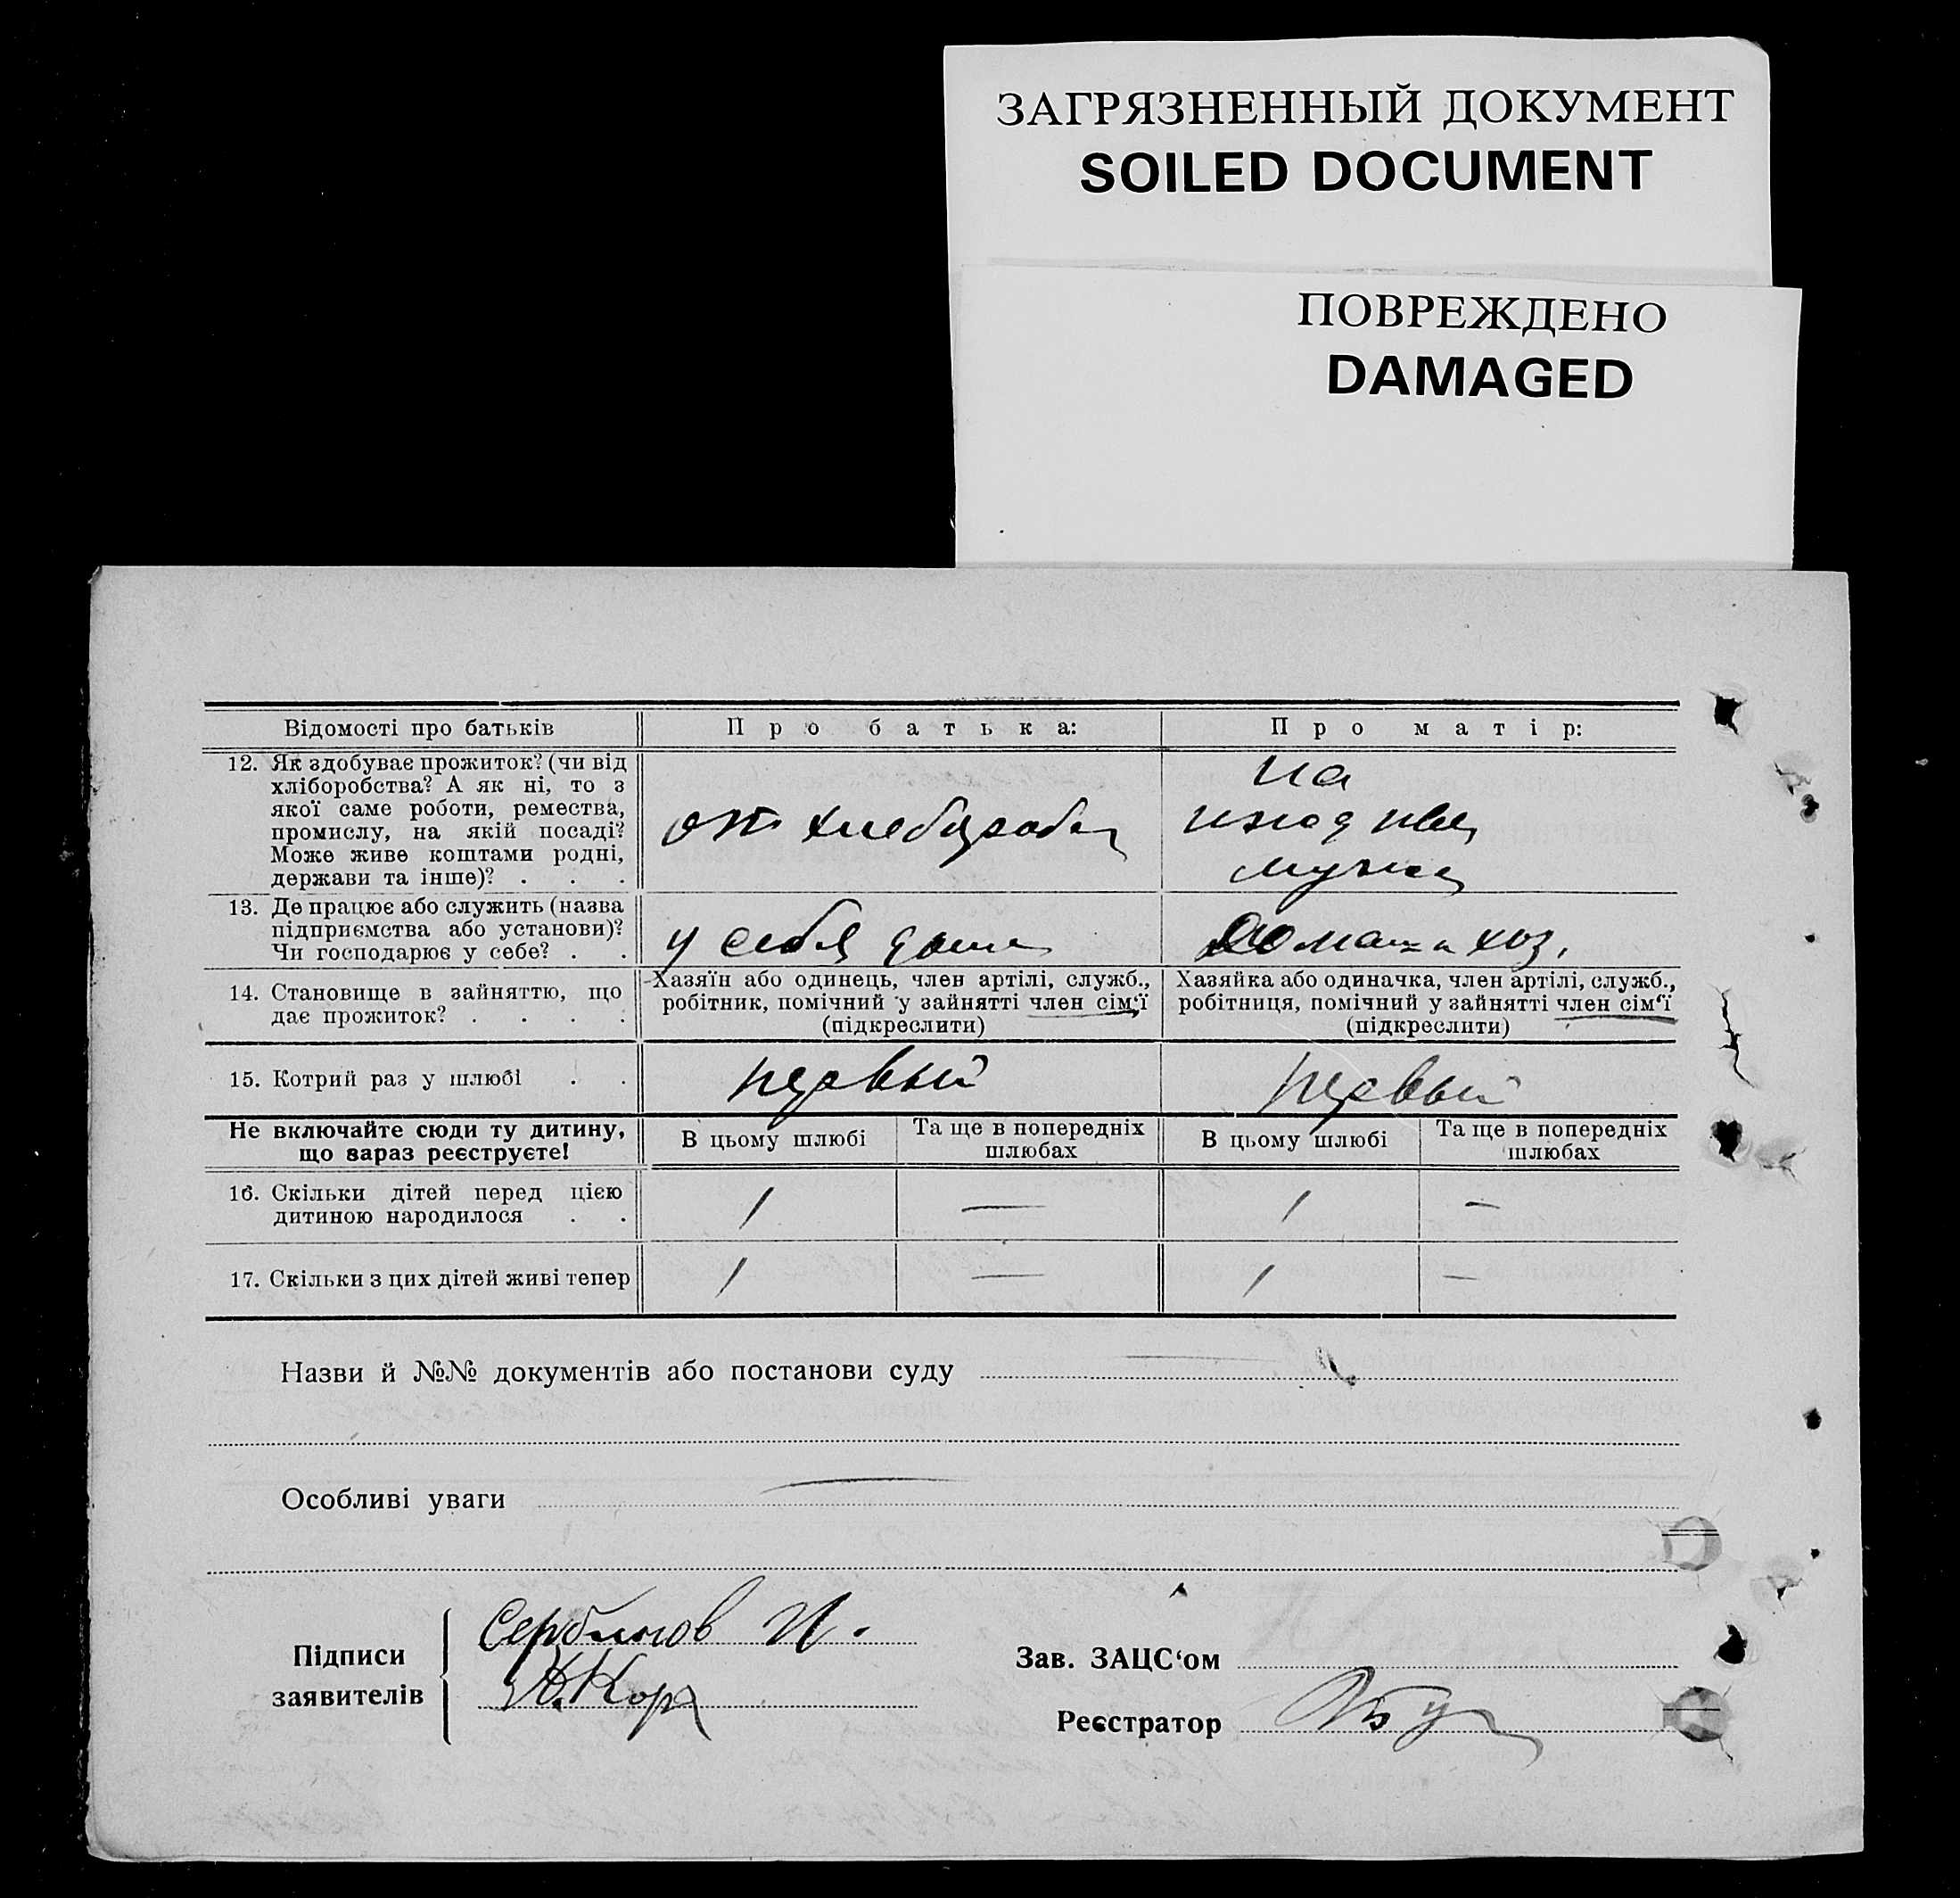 ЗАГРЯЗНЕННЫЙ ДОКУМЕНТ
SOILED DOCUMENT
ПОВРЕЖДЕНО
DAMAGED
Відомості про батьків
Про батька:
Про матір:
12. Як здобуває прожиток? (чи від
хліборобства? А як ні, то з
якої саме роботи, ремества,
промислу, на якій посаді?
Може живе коштами родні,
держави та інше)? . . .
от хлебороба
на
иждивен
мужа
13. Де працює або служить (назва
підприємства або установи)?
Чи господарює у себе? . .
у себя дома
домашн хоз.
14. Становище в зайняттю, що
дає прожиток? . . . .
Хазяїн або одинець, член артілі, служб.,
робітник, помічний у зайнятті член сім‘ї
(підкреслити)
Хазяйка або одиначка, член артілі, служб.,
робітниця, помічний у зайнятті член сім‘ї
(підкреслити)
15. Котрий раз у шлюбі . .
первый
первый
Не включайте сюди ту дитину,
що зараз реєструєте!
В цьому шлюбі
Та ще в попередніх
шлюбах
В цьому шлюбі
Та ще в попередніх
шлюбах
16. Скільки дітей перед цією
дитиною народилося . .
1
—
1
—
17. Скільки з цих дітей живі тепер
1
—
1
—
Назви й №№ документів або постанови суду
Особливі уваги
Підписи
заявителів
Сербинов И.
Кор
Зав. ЗАЦС‘ом
Реєстратор